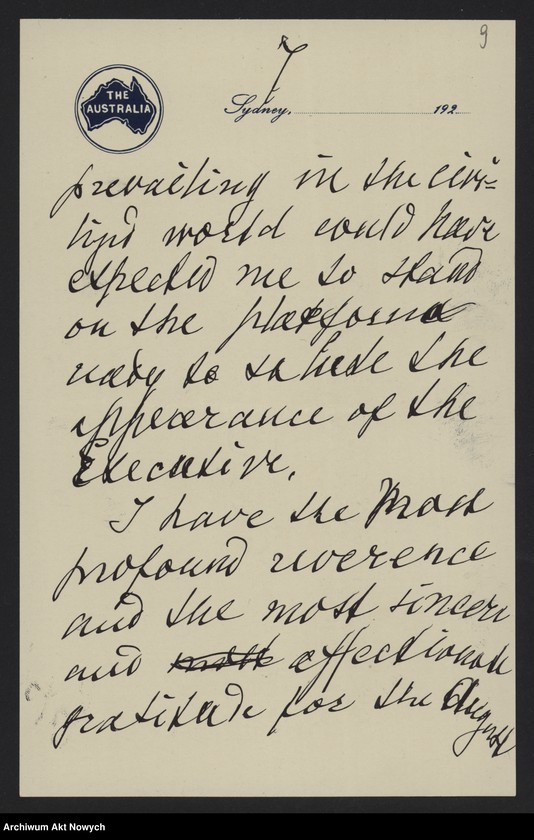 9
7
THE
AUSTRALIA
Sydney, 192
prevailing in the civi=
lized world could have
expected me to stand
on the platform
ready to salute the
appearance of the
Executive.
I have the most
profound reverence
and the most sincere
and most affectionate
gratitude for the August
Archiwum Akt Nowych